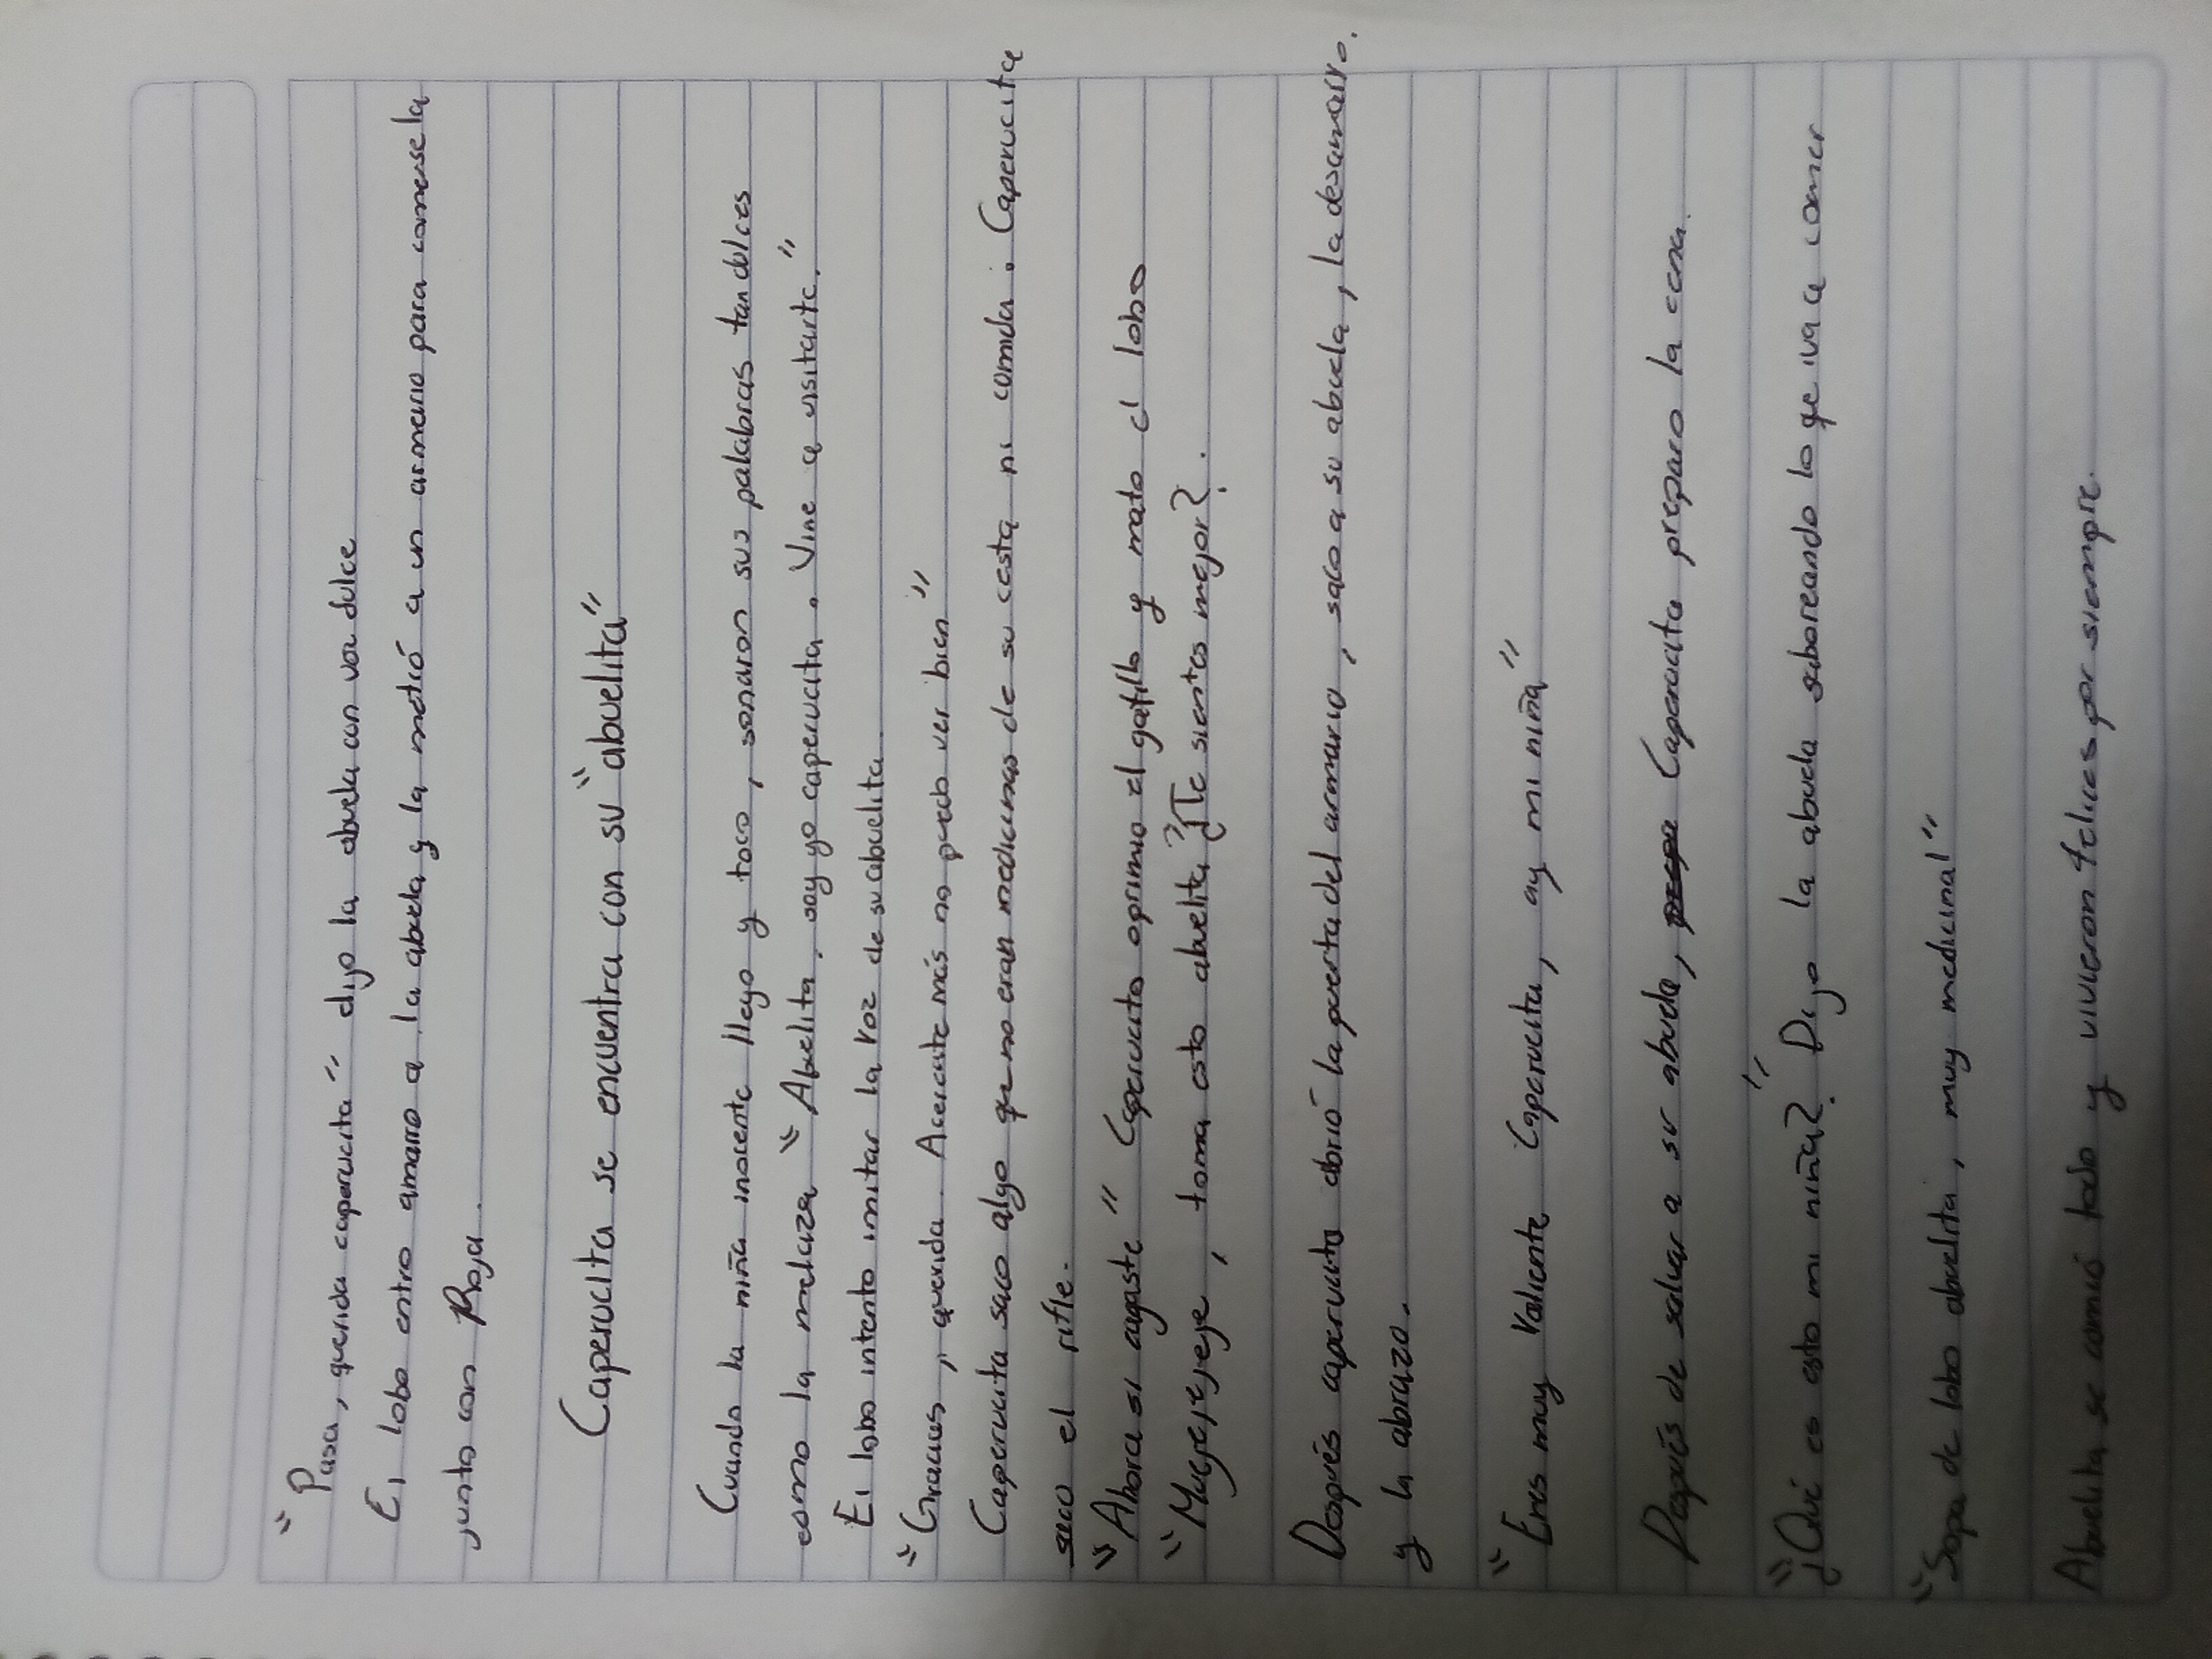 "Pasa, querida caperucita" dijo la abuela con voz dulce
El lobo entro amarro a la abuela y la metió a un armario para comersela
junto con Roja.
Caperucita se encuentra con su "abuelita"
Cuando la niña inocente llego y toco, sonaron sus palabras tan dulces
como la melaza "Abuelita, soy yo caperucita. Vine a visitarte."
El lobo intento imitar la voz de su abuelita.
"Gracias, querida. Acercate más no puedo ver bien"
Caperucita saco algo que no eran medicinas de su cesta ni comida. Caperucita
saco el rifle.
"Ahora si cagaste" Caperucita oprimio el gatillo y mato el lobo
"Muejejejeje, toma esto abuelita" ¿Te sientes mejor?.
Después caperucita abrió la puerta del armario, saco a su abuela, la desamarro.
y la abrazo.
"Eres muy valiente Caperucita, ay mi niña"
Después de salvar a su abuela, Caperucita preparo la cena.
"¿Qué es esto mi niña?" Dijo la abuela saboreando lo qe iva a comer
"Sopa de lobo abuelita, muy medicinal"
Abuelita se comió todo y vivieron felices por siempre.